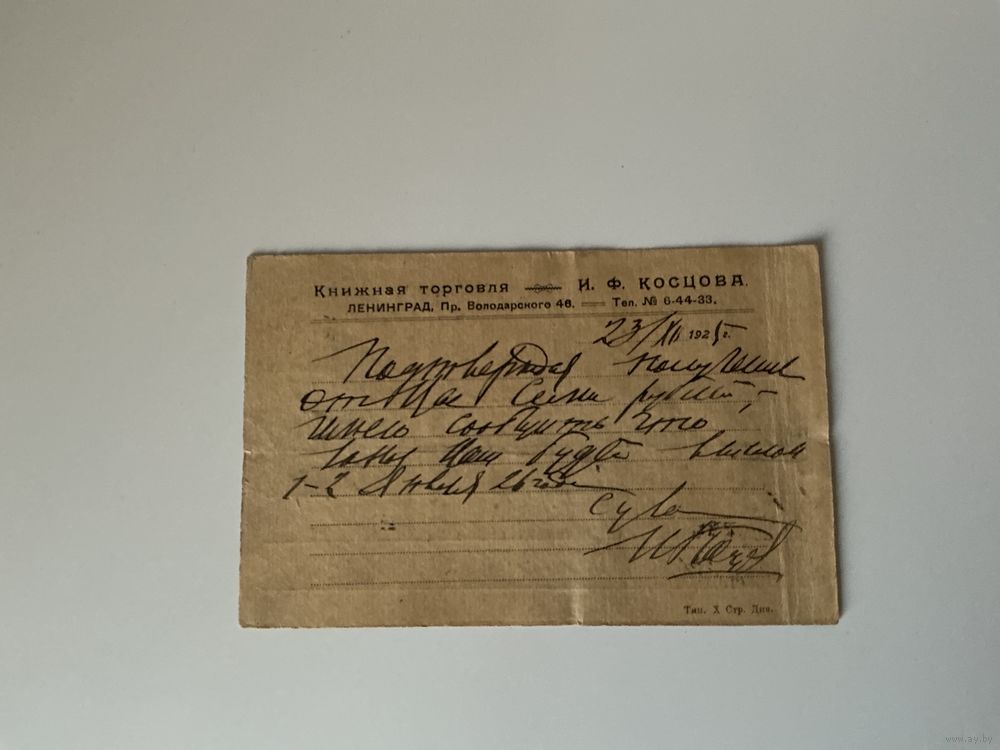 Книжная торговля И. Ф. КОСЦОВА.
ЛЕНИНГРАД, Пр. Володарского 46. Тел. № 6-44-33.
23/XII 1925 г.
Подтверждая получение
от Вас рублей,
имею сообщить что
Вам будет выслан
1-2 Января 26 года
Тип. X Стр. Див.
www.ay.by